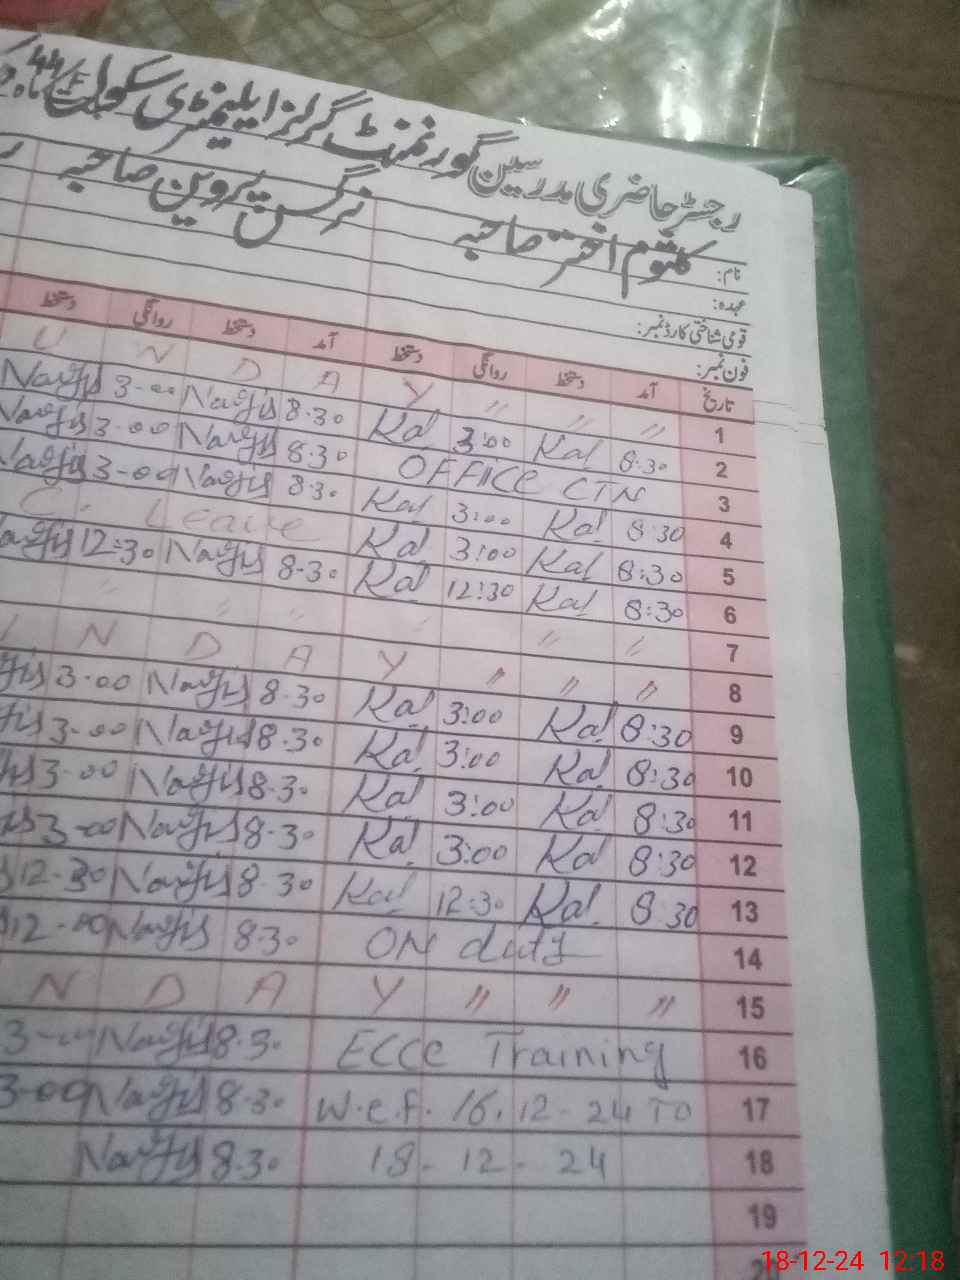 رجسٹر حاضری مدرسین گورنمنٹ گرلز ایلیمنٹری سکول
نام: کلثوم اختر صاحبہ نرگس پروین صاحبہ
عہدہ:
قومی شناختی کارڈ نمبر:
فون نمبر:
تاریخ آمد دستخط روانگی دستخط آمد دستخط روانگی دستخط
U N D A Y " " " 1
Nargis 3-00 Nargis 8.30 Kal 3:00 Kal 8:30 2
Nargis 3-00 Nargis 8.30 OFFICE CTN 3
Nargis 3-00 Nargis 8.30 Kal 3:00 Kal 8:30 4
C. Leave Kal 3:00 Kal 8:30 5
Nargis 12:30 Nargis 8.30 Kal 12:30 Kal 8:30 6
" " " " " " 7
N D A Y " " " 8
3-00 Nargis 8.30 Kal 3:00 Kal 8:30 9
3-00 Nargis 8.30 Kal 3:00 Kal 8:30 10
3-00 Nargis 8.30 Kal 3:00 Kal 8:30 11
3-00 Nargis 8.30 Kal 3:00 Kal 8:30 12
12-30 Nargis 8.30 Kal 12:30 Kal 8:30 13
12-00 Nargis 8.30 ON duty 14
N D A Y " " " 15
3-00 Nargis 8.30 ECCE Training 16
3-00 Nargis 8.30 W.e.f. 16.12-24 TO 17
Nargis 8.30 18-12-24 18
19
18-12-24 12:18